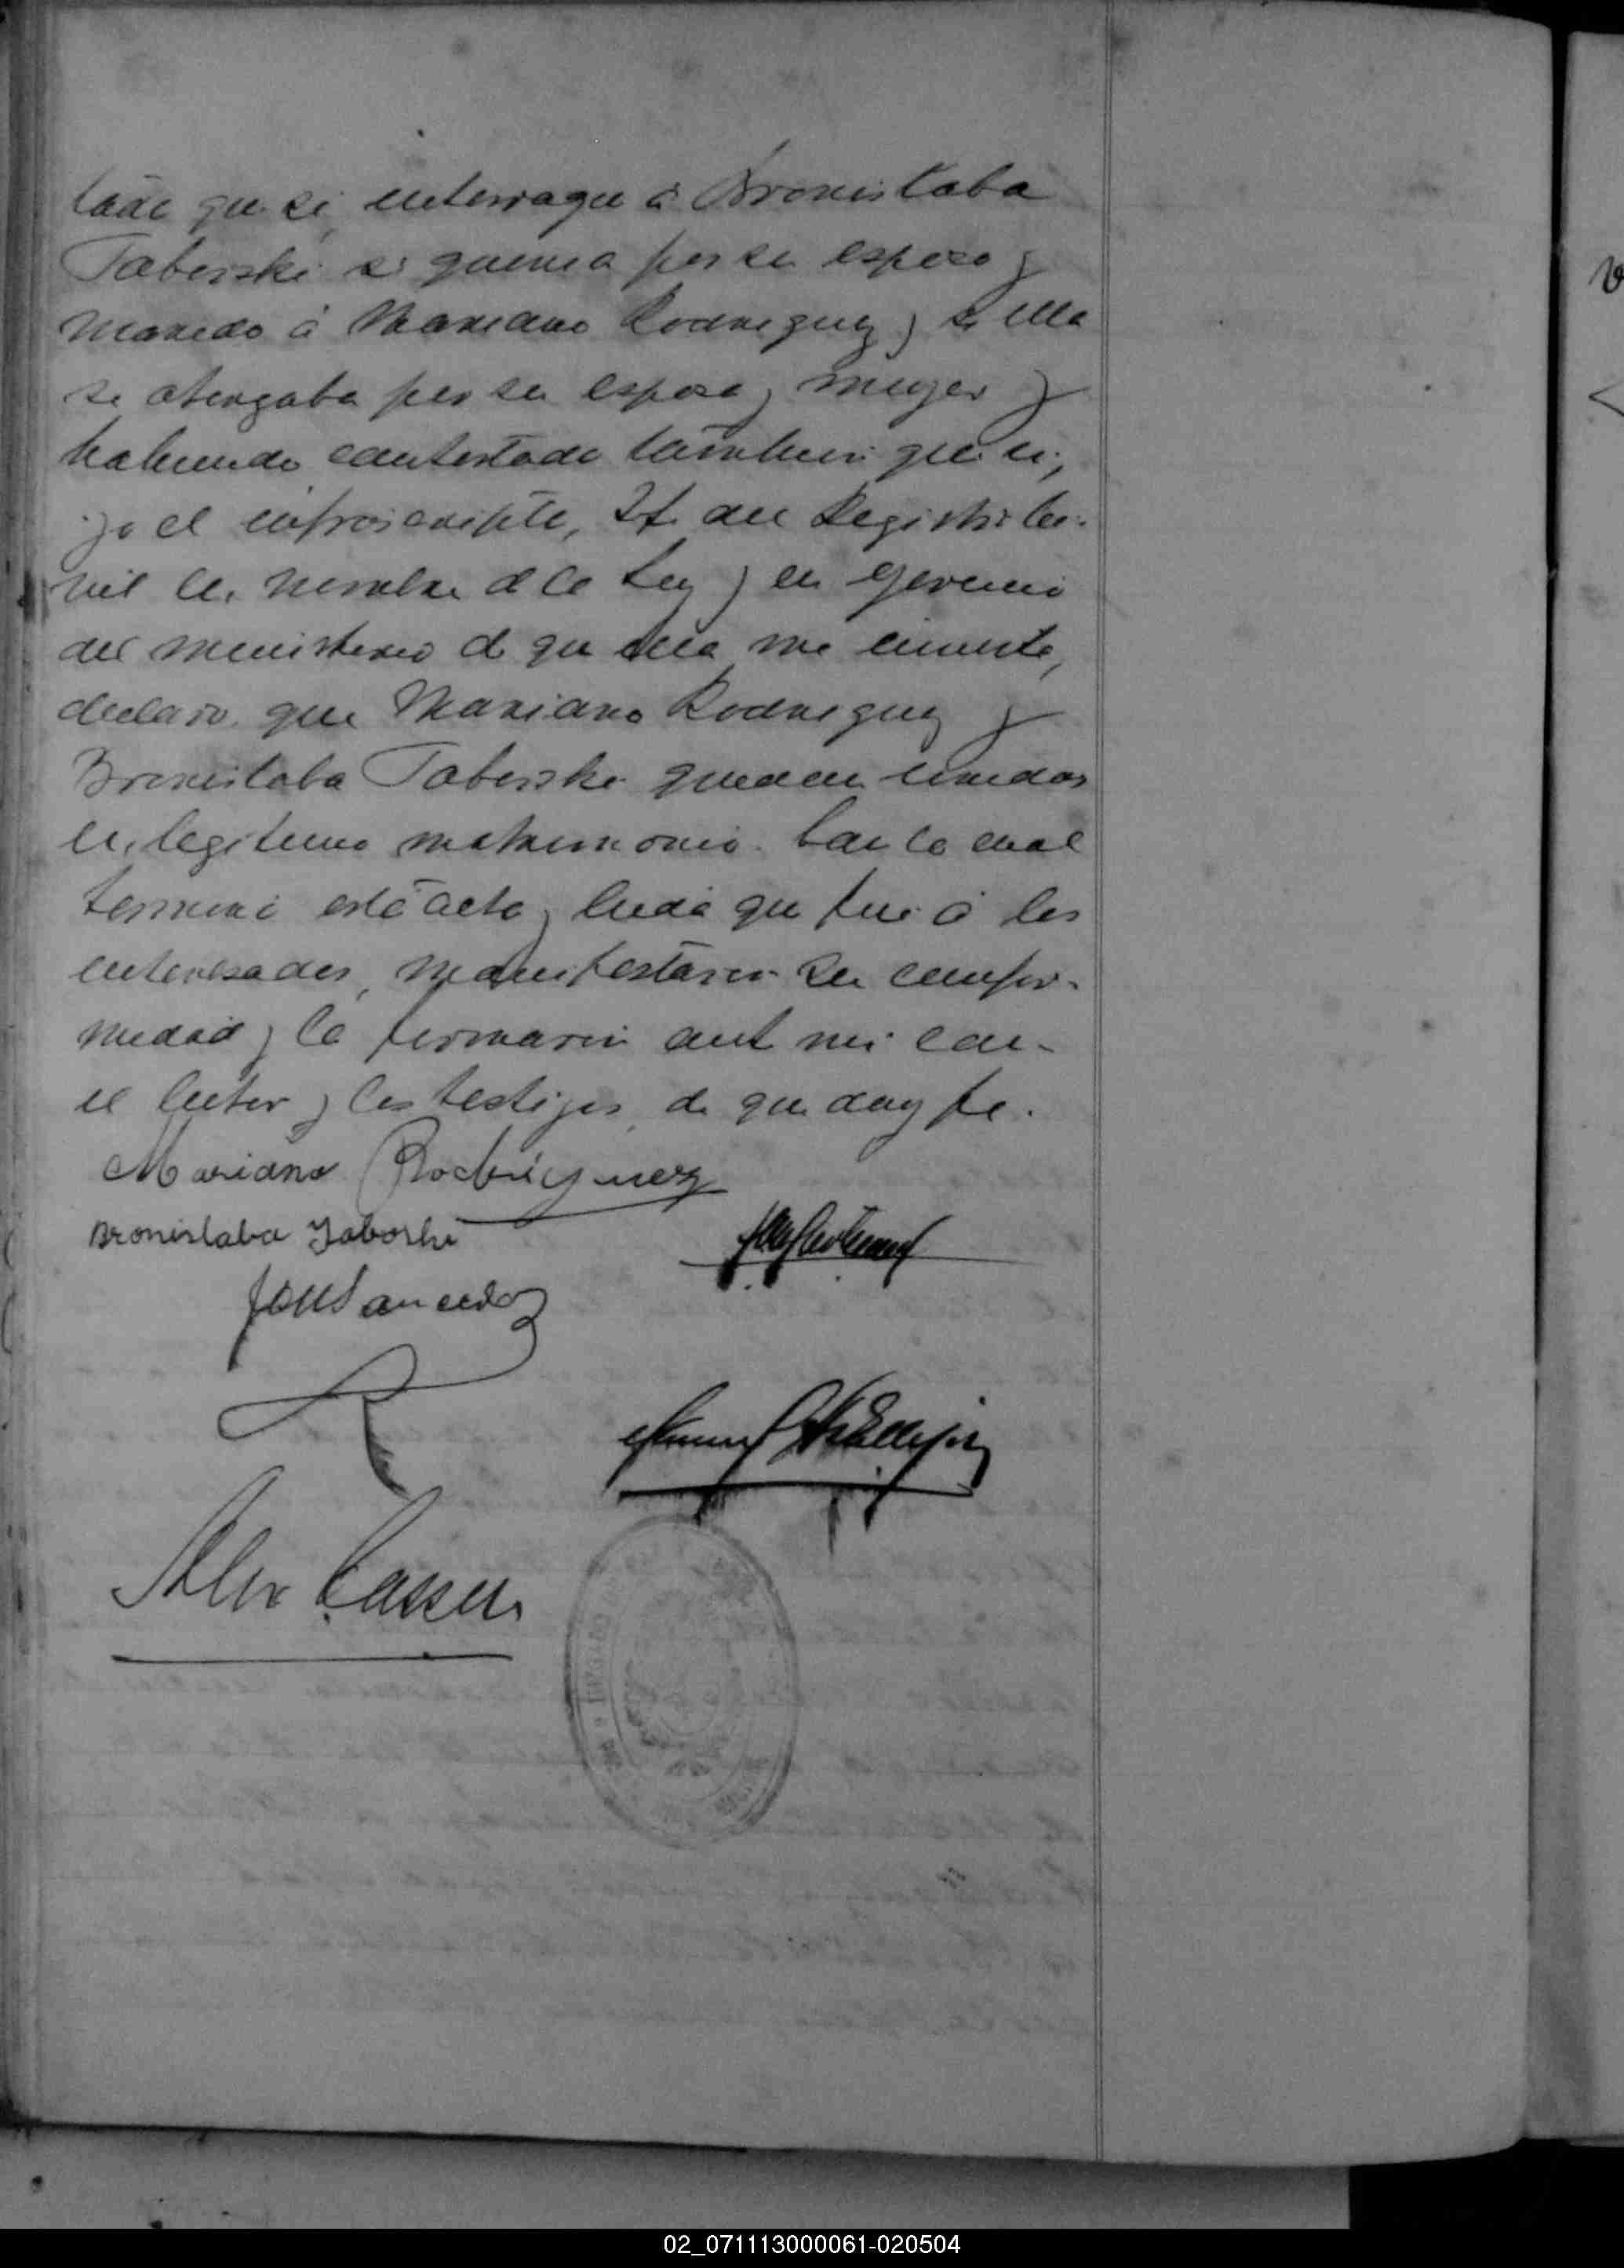 tado que si, interrogué á Bronislaba
Taberski si queria por su esposo y
marido á Mariano Rodriguez y si ella
se otorgaba por su esposa y muger y
habiendo contestado tambien que si,
yo el infrascripto, Jf. del Registro Ci-
vil en nombre de la Ley y en egercicio
del ministerio de que ella me inviste,
declaro que Mariano Rodriguez y
Bronislaba Taberski quedan unidos
en legitimo matrimonio. Con lo cual
terminó esta acta y leida que fué á los
interesados, manifestaron su confor-
midad y la firmaron ante mi con
el lector y los testigos, de que doy fe.
Mariano Rodriguez
Bronislaba Taborski